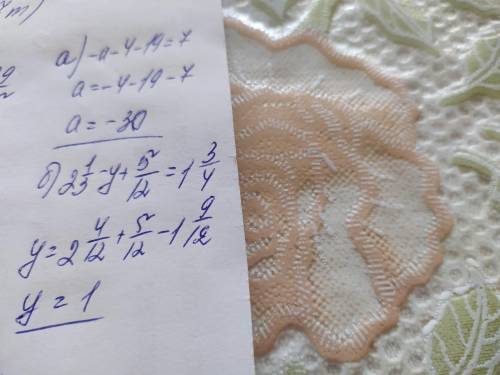 а) -а-4-19=7
а=-4-19-7
а=-30
б) 2 1/3 - y + 5/12 = 1 3/4
y = 2 4/12 + 5/12 - 1 9/12
y = 1